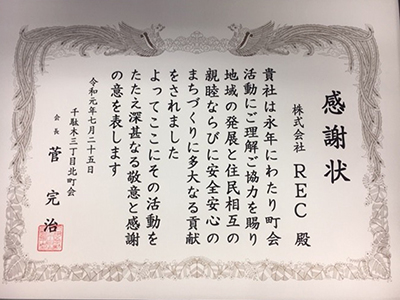 感謝状
株式会社 REC 殿
貴社は永年にわたり町会
活動にご理解ご協力を賜り
地域の発展と住民相互の
親睦ならびに安全安心の
まちづくりに多大なる貢献
をされました
よってここにその活動を
たたえ深甚なる敬意と感謝
の意を表します
令和元年七月二十五日
千駄木三丁目北町会
会長 菅 完治